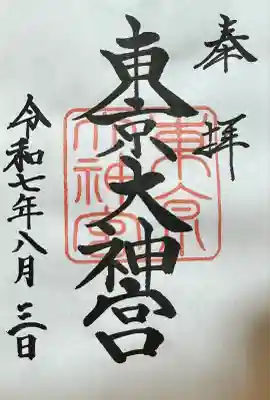 奉拝
東京大神宮
東京大神宮
令和七年八月三日